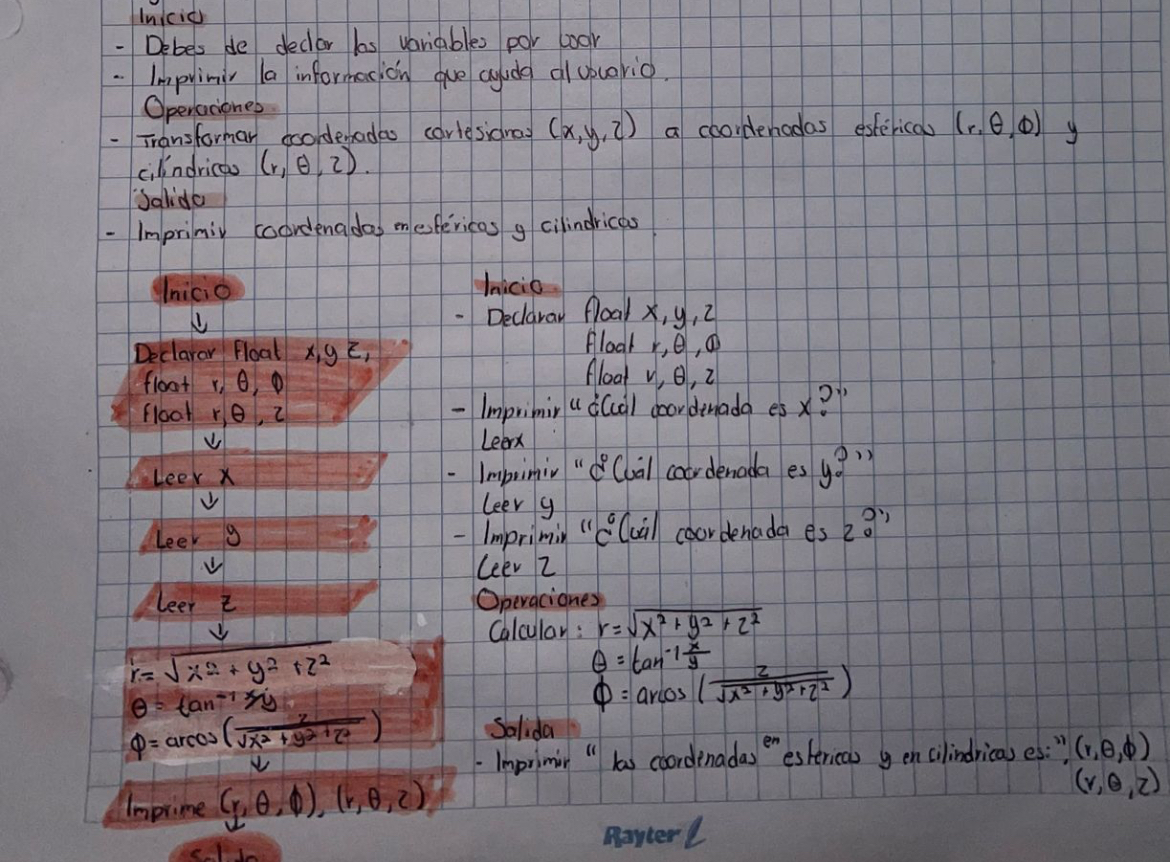 Inicio
- Debes de declar las variables por
- Imprimir la información que ayuda al usuario.
Operaciones
- Transformar coordenadas cartesianas (x,y,z) a coordenadas esféricas (r,θ,ϕ) y
cilíndricas (r,θ,z).
Salida
- Imprimir coordenadas en esféricas y cilindricas.
Inicio
↓
Declarar Float x,y z,
float r, θ, ϕ
float r,θ, z
↓
Leer x
↓
Leer y
↓
Leer z
↓
r=√x²+y²+z²
θ= tan⁻¹ x/y
ϕ=arcos(z/√x²+y²+z²)
↓
Imprime (r,θ,ϕ),(r,θ,z)
↓
Salida
Inicio
- Declarar float x,y,z
float r,θ,ϕ
float r,θ,z
- Imprimir "¿Cuál coordenada es x?"
Leer x
- Imprimir "¿Cuál coordenada es y?"
Leer y
- Imprimir "¿Cuál coordenada es z?"
Leer z
Operaciones
Calcular: r=√x²+y²+z²
θ=tan⁻¹ x/y
ϕ=arcos(z/√x²+y²+z²)
Salida
- Imprimir "las coordenadas en esfericas y en cilindricas es:",(r,θ,ϕ)
(r,θ,z)
Rayter